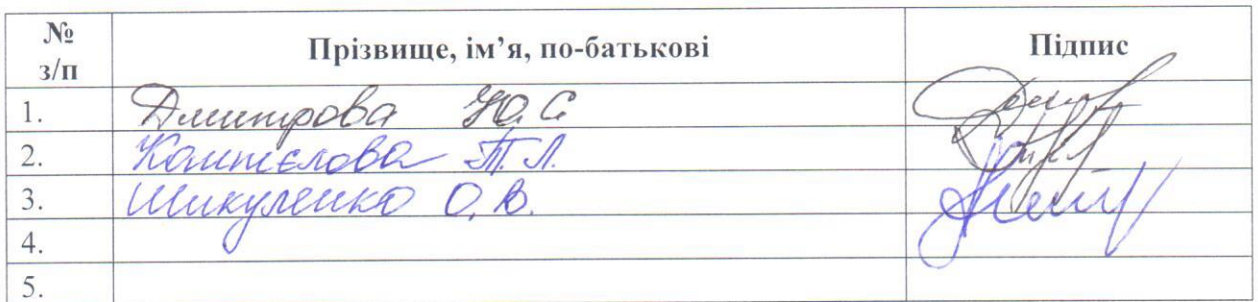 № з/п Прізвище, ім’я, по-батькові Підпис
1. Дмитрова Ю.С
2. Коштєлова Т.Л.
3. Шикуленко О.В.
4.
5.